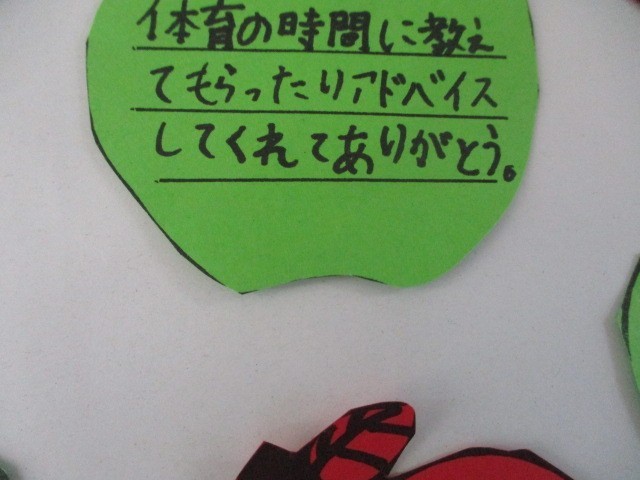 体育の時間に教え
てもらったりアドバイス
してくれてありがとう。